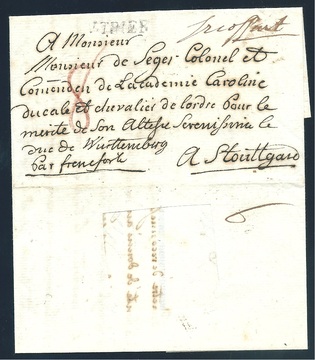 A Monsieur
Monsieur de Seger Colonel et
Comenden de Lacademie Caroline
ducale et chevalier de lordre pour le
merite de Son Altesse Serenissime le
duc de Würtemberg
par frencfort
A Stouttgard